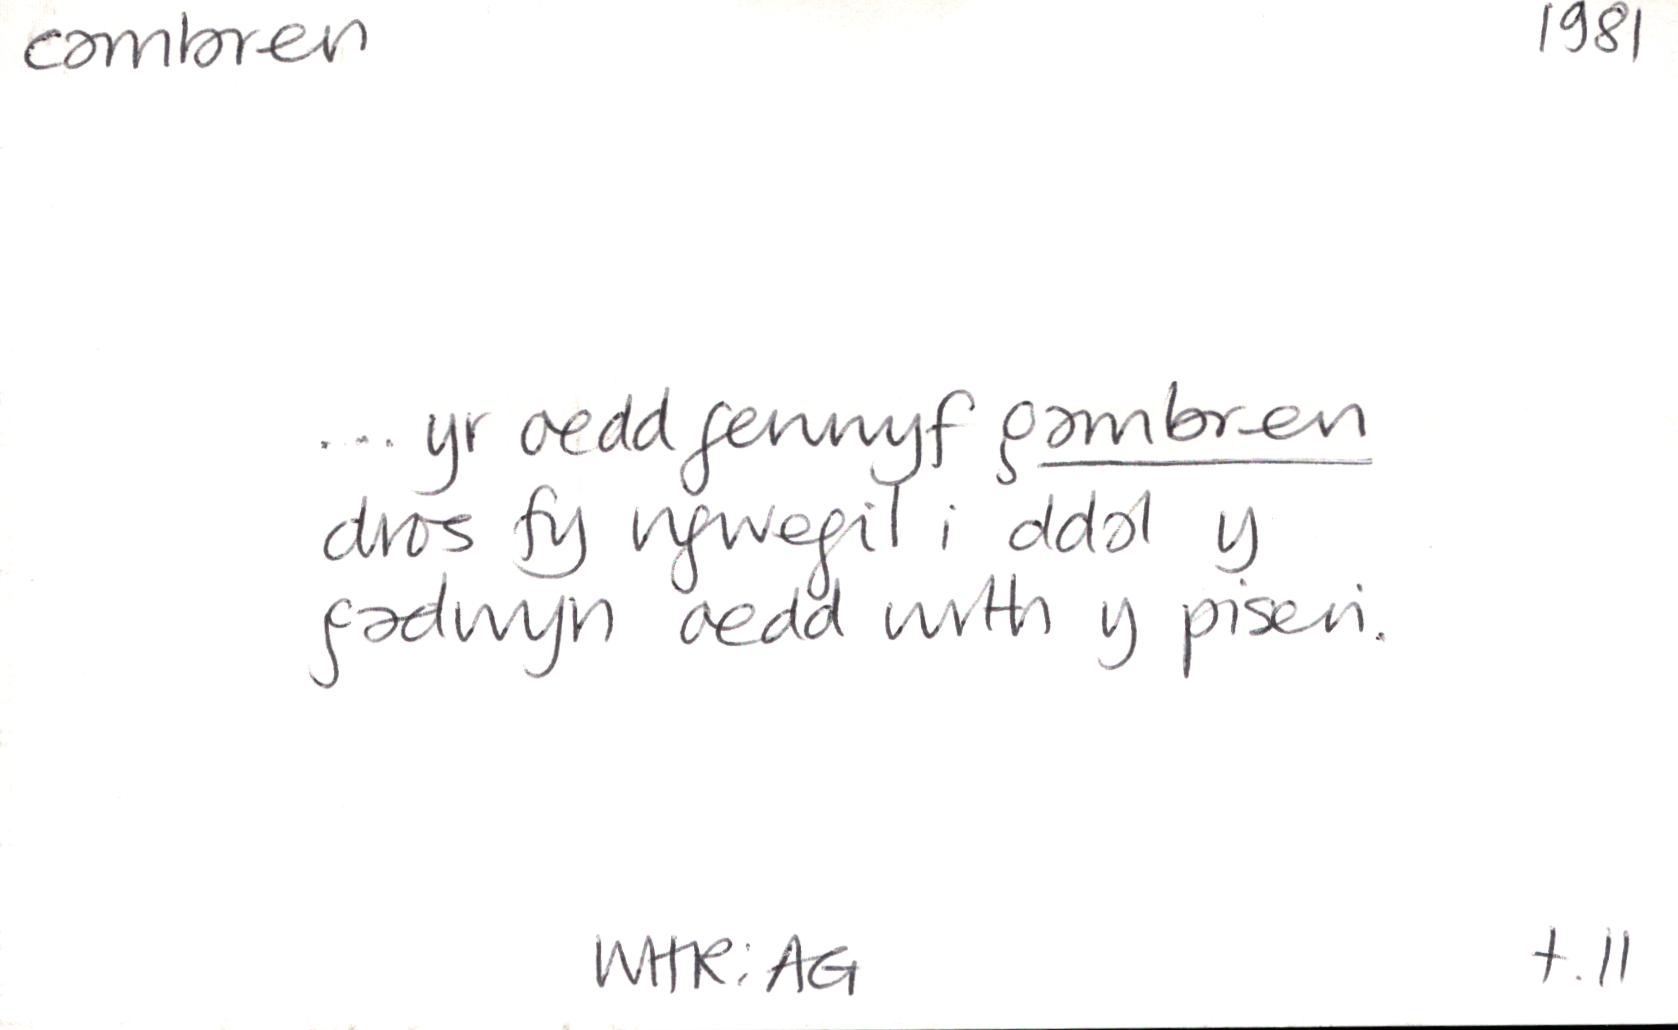 cambren 1981
.... yr oedd gennyf gambren
dros fy ngwegil i ddal y
gadwyn oedd wrth y piseri.
WHR: AG t. 11